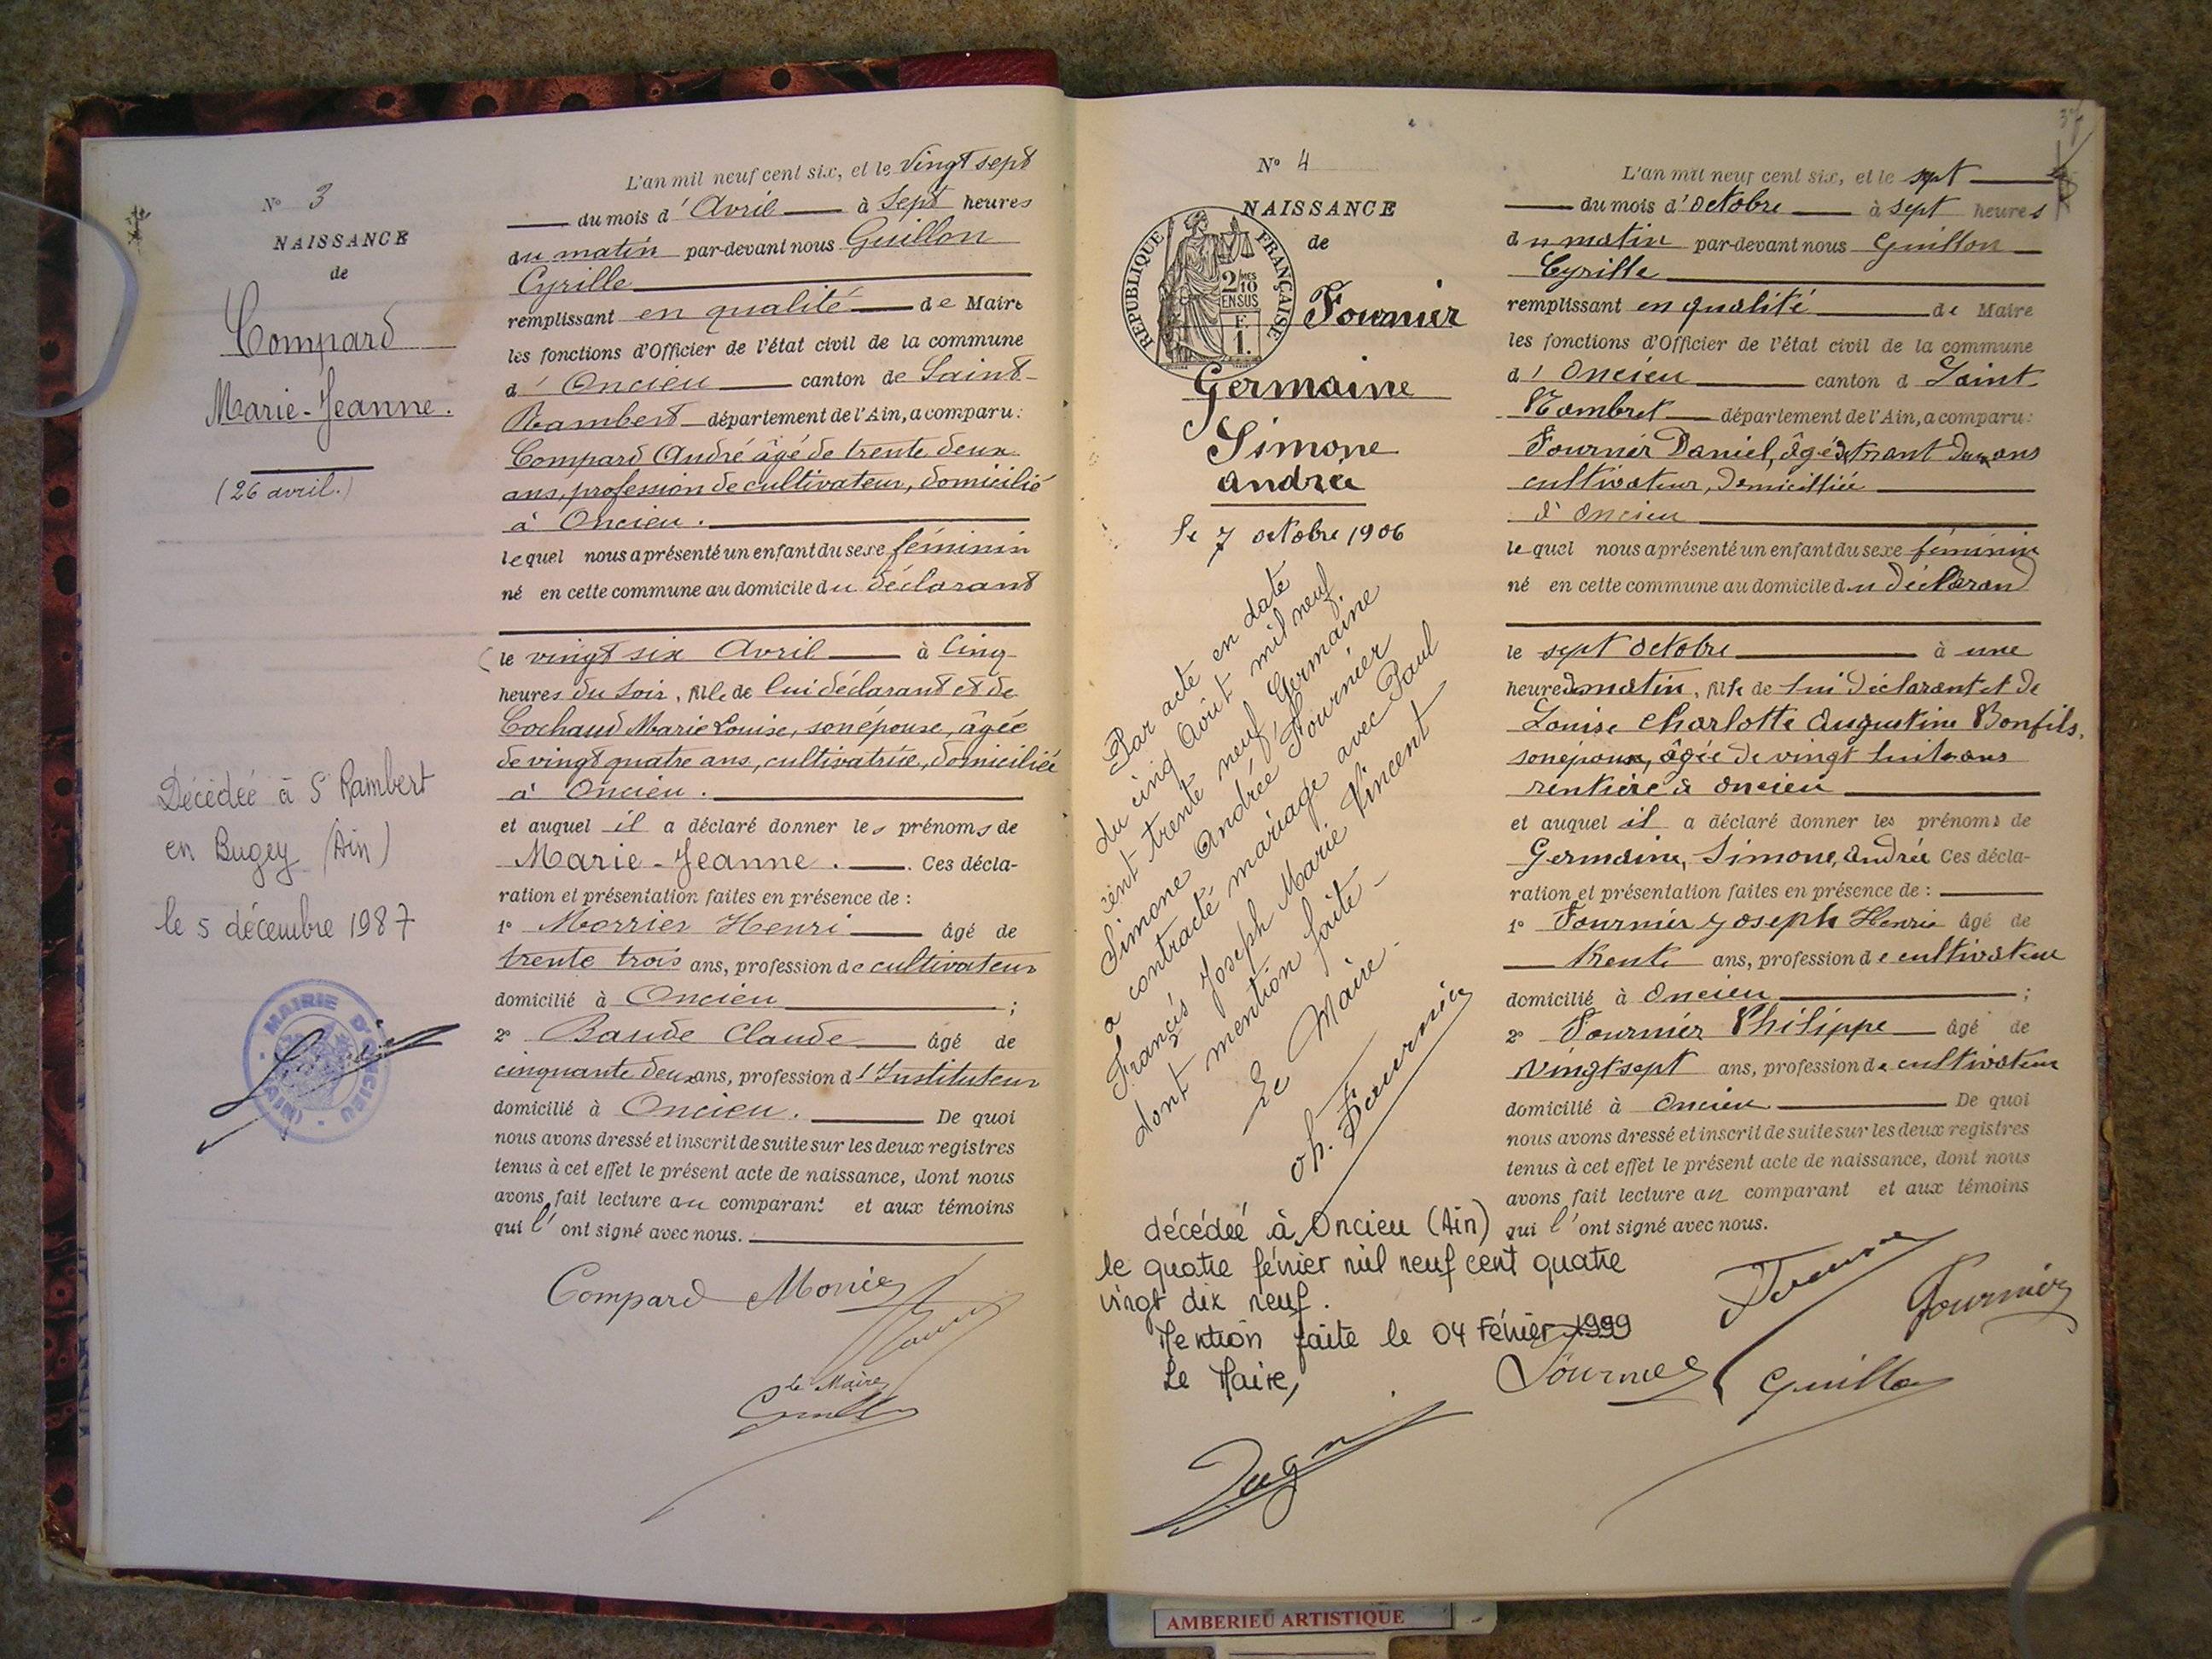 N° 3
NAISSANCE
de
Compard
Marie-Jeanne.
(26 avril.)
Décédée à St Rambert
en Bugey (Ain)
le 5 décembre 1987
MAIRIE D'ONCIEU
(AIN)
L'an mil neuf cent six, et le vingt sept
du mois d'Avril à Sept heures
du matin par-devant nous Guillon
Cyrille
remplissant en qualité de Maire
les fonctions d'Officier de l'état civil de la commune
d'Oncieu canton de Saint-
Rambert département de l'Ain, a comparu:
Compard André âgé de trente deux
ans, profession de cultivateur, domicilié
à Oncieu.
lequel nous a présenté un enfant du sexe féminin
né en cette commune au domicile du déclarant
le vingt six Avril à Cinq
heures du Soir, fille de lui déclarant et de
Cochaud Marie Louise, son épouse, âgée
de vingt quatre ans, cultivatrice, domiciliée
à Oncieu.
et auquel il a déclaré donner les prénoms de
Marie-Jeanne. Ces décla-
ration et présentation faites en présence de:
1° Morrier Henri âgé de
trente trois ans, profession de cultivateur
domicilié à Oncieu;
2° Baude Claude âgé de
cinquante deux ans, profession d'Instituteur
domicilié à Oncieu. De quoi
nous avons dressé et inscrit de suite sur les deux registres
tenus à cet effet le présent acte de naissance, dont nous
avons fait lecture au comparant et aux témoins
qui l'ont signé avec nous.
Compard Morrier
le Maire
Guillon
N° 4
NAISSANCE
de
REPUBLIQUE FRANÇAISE
2/10 MES
EN SUS
1.
Fournier
Germaine
Simone
andrée
le 7 octobre 1906
Par acte en date
du cinq Août mil neuf
cent trente neuf, Germaine
Simone Andrée Fournier
a contracté mariage avec Paul
Françis Joseph Marie Vincent
dont mention faite -
Le Maire -
Ph. Fournier
décédée à Oncieu (Ain)
le quatre février mil neuf cent quatre
vingt dix neuf.
Mention faite le 04 Février 1999
Le Maire,
L'an mil neuf cent six, et le sept
du mois d'octobre à sept heures
du matin par-devant nous Guillon
Cyrille
remplissant en qualité de Maire
les fonctions d'Officier de l'état civil de la commune
d'Oncieu canton d Saint
Rambert département de l'Ain, a comparu:
Fournier Daniel, âgé de trant deux ans
cultivateur, domicillié
à oncieu
lequel nous a présenté un enfant du sexe féminin
né en cette commune au domicile du déclarand
le sept octobre à une
heure du matin, fille de lui déclarant et de
Louise Charlotte Augustine Bonfils,
son épouse, âgée de vingt huit ans
rentière à oncieu
et auquel il a déclaré donner les prénoms de
Germaine, Simone, andrée Ces décla-
ration et présentation faites en présence de:
1° Fournier Joseph Henri âgé de
trente ans, profession de cultivateur
domicilié à oncieu;
2° Fournier Philippe âgé de
vingt sept ans, profession de cultivateur
domicilié à oncieu De quoi
nous avons dressé et inscrit de suite sur les deux registres
tenus à cet effet le présent acte de naissance, dont nous
avons fait lecture au comparant et aux témoins
qui l'ont signé avec nous.
Fournier
Fournier Guillon
AMBERIEU ARTISTIQUE